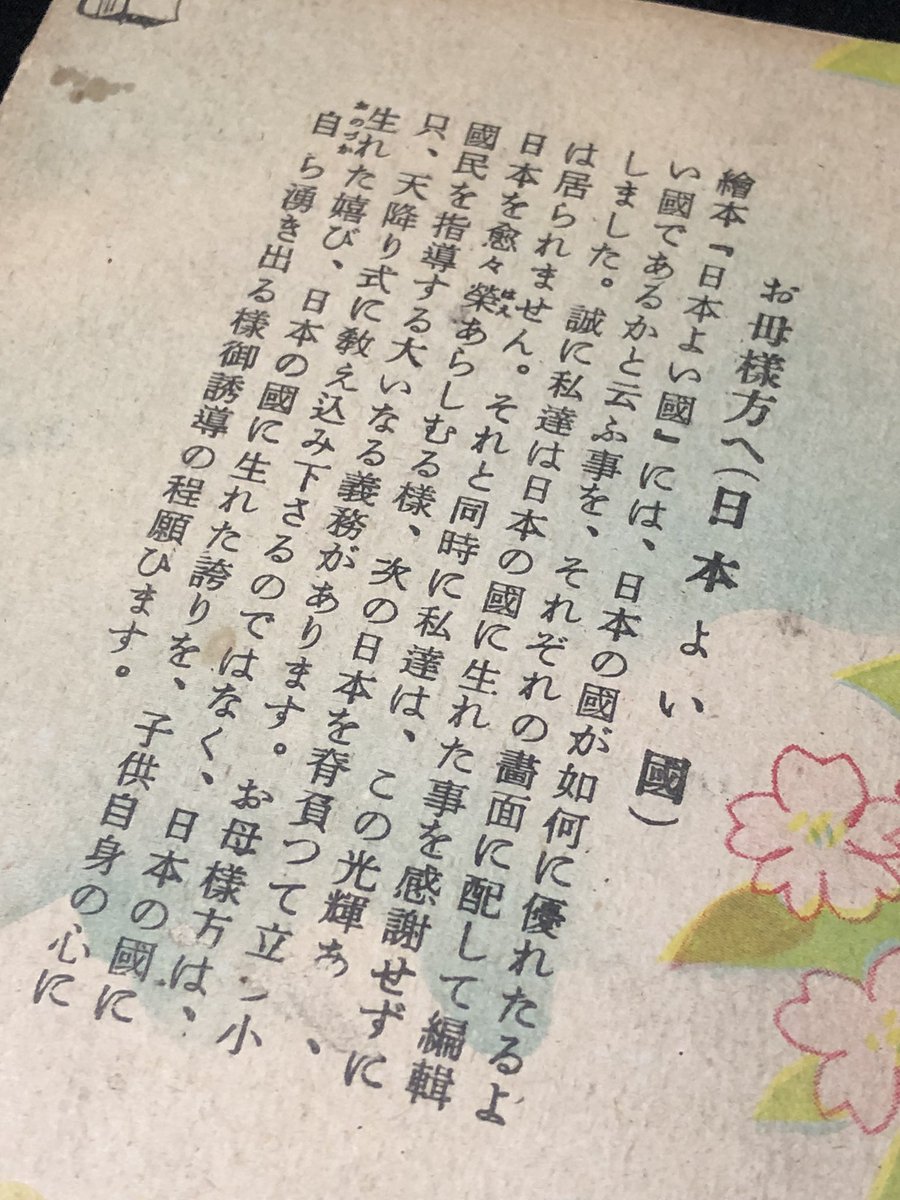 お母様方へ(日本よい國)
繪本『日本よい國』には、日本の國が如何に優れたるよ
い國であるかと云ふ事を、それぞれの畫面に配して編輯
しました。誠に私達は日本の國に生れた事を感謝せずに
は居られません。それと同時に私達は、この光輝あ、
日本を愈々榮はえあらしむる様、次の日本を脊負つて立小
國民を指導する大いなる義務があります。お母様方は、
只、天降り式に敎え込み下さるのではなく、日本の國に
生れた嬉び、日本の國に生れた誇りを、子供自身の心に
自おのづから湧き出る様御誘導の程願ひます。